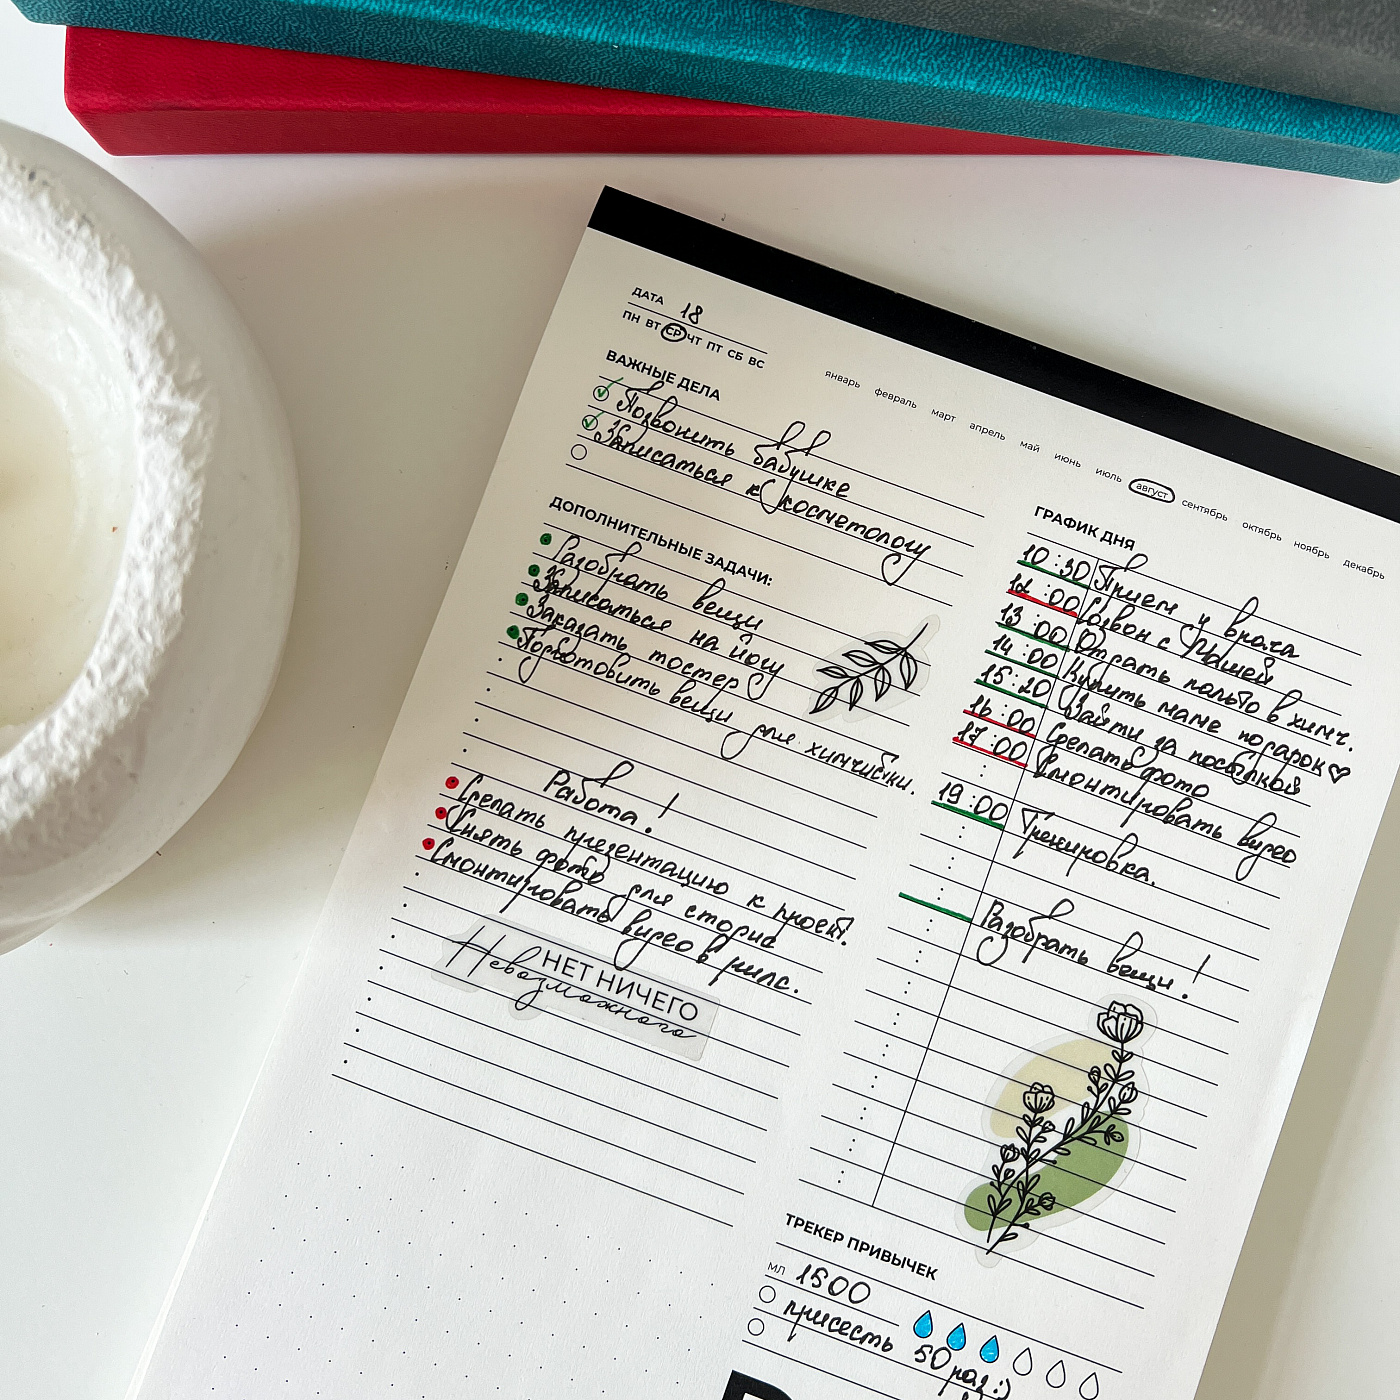 ДАТА 18
ПН ВТ СР ЧТ ПТ СБ ВС
январь февраль март апрель май июнь июль август сентябрь октябрь ноябрь декабрь
ВАЖНЫЕ ДЕЛА
Позвонить бабушке
Записаться к косметологу
ДОПОЛНИТЕЛЬНЫЕ ЗАДАЧИ:
Разобрать вещи
Записаться на йогу
Заказать тостер
Подготовить вещи для химчистки.
Работа!
Сделать презентацию к проект.
Снять фото для сторис
Смонтировать видео в рилс.
НЕТ НИЧЕГО
Невозможного
ГРАФИК ДНЯ
10:30 Прием у врача
12:00 Созвон с Машей
13:00 Отдать пальто в химч.
14:00 Купить маме подарок♡
15:20 Зайти за посылкой
16:00 Сделать фото
17:00 Смонтировать видео
19:00 Тренировка.
Разобрать вещи!
ТРЕКЕР ПРИВЫЧЕК
МЛ 1500
присесть 50 раз:)